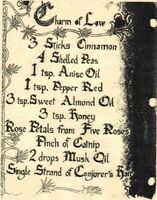 Charm of Love
3 Sticks Cinnamon
4 Shelled Peas
1 tsp. Anise Oil
1 tsp. Pepper Red
3 tsp. Sweet Almond Oil
3 tsp. Honey
Rose Petals from Five Roses
Pinch of Catnip
2 drops Musk Oil
Single Strand of Conjurer's Hair